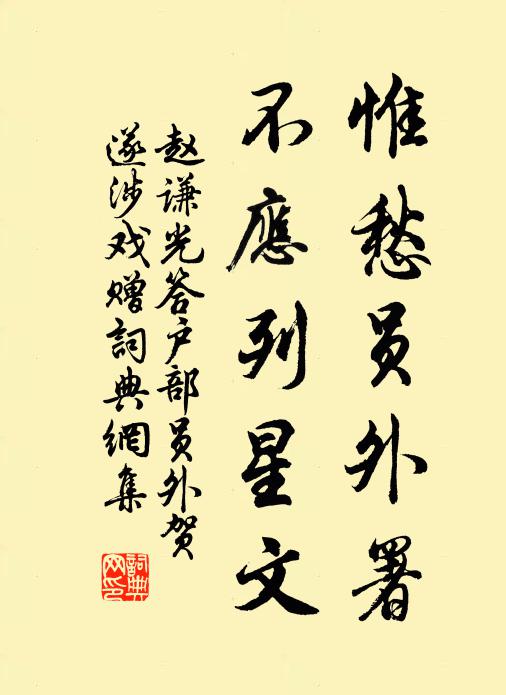 惟愁员外署
不應列星文
赵谦光答户部员外贺
遂涉戏赠詞典網集
詞典
网印